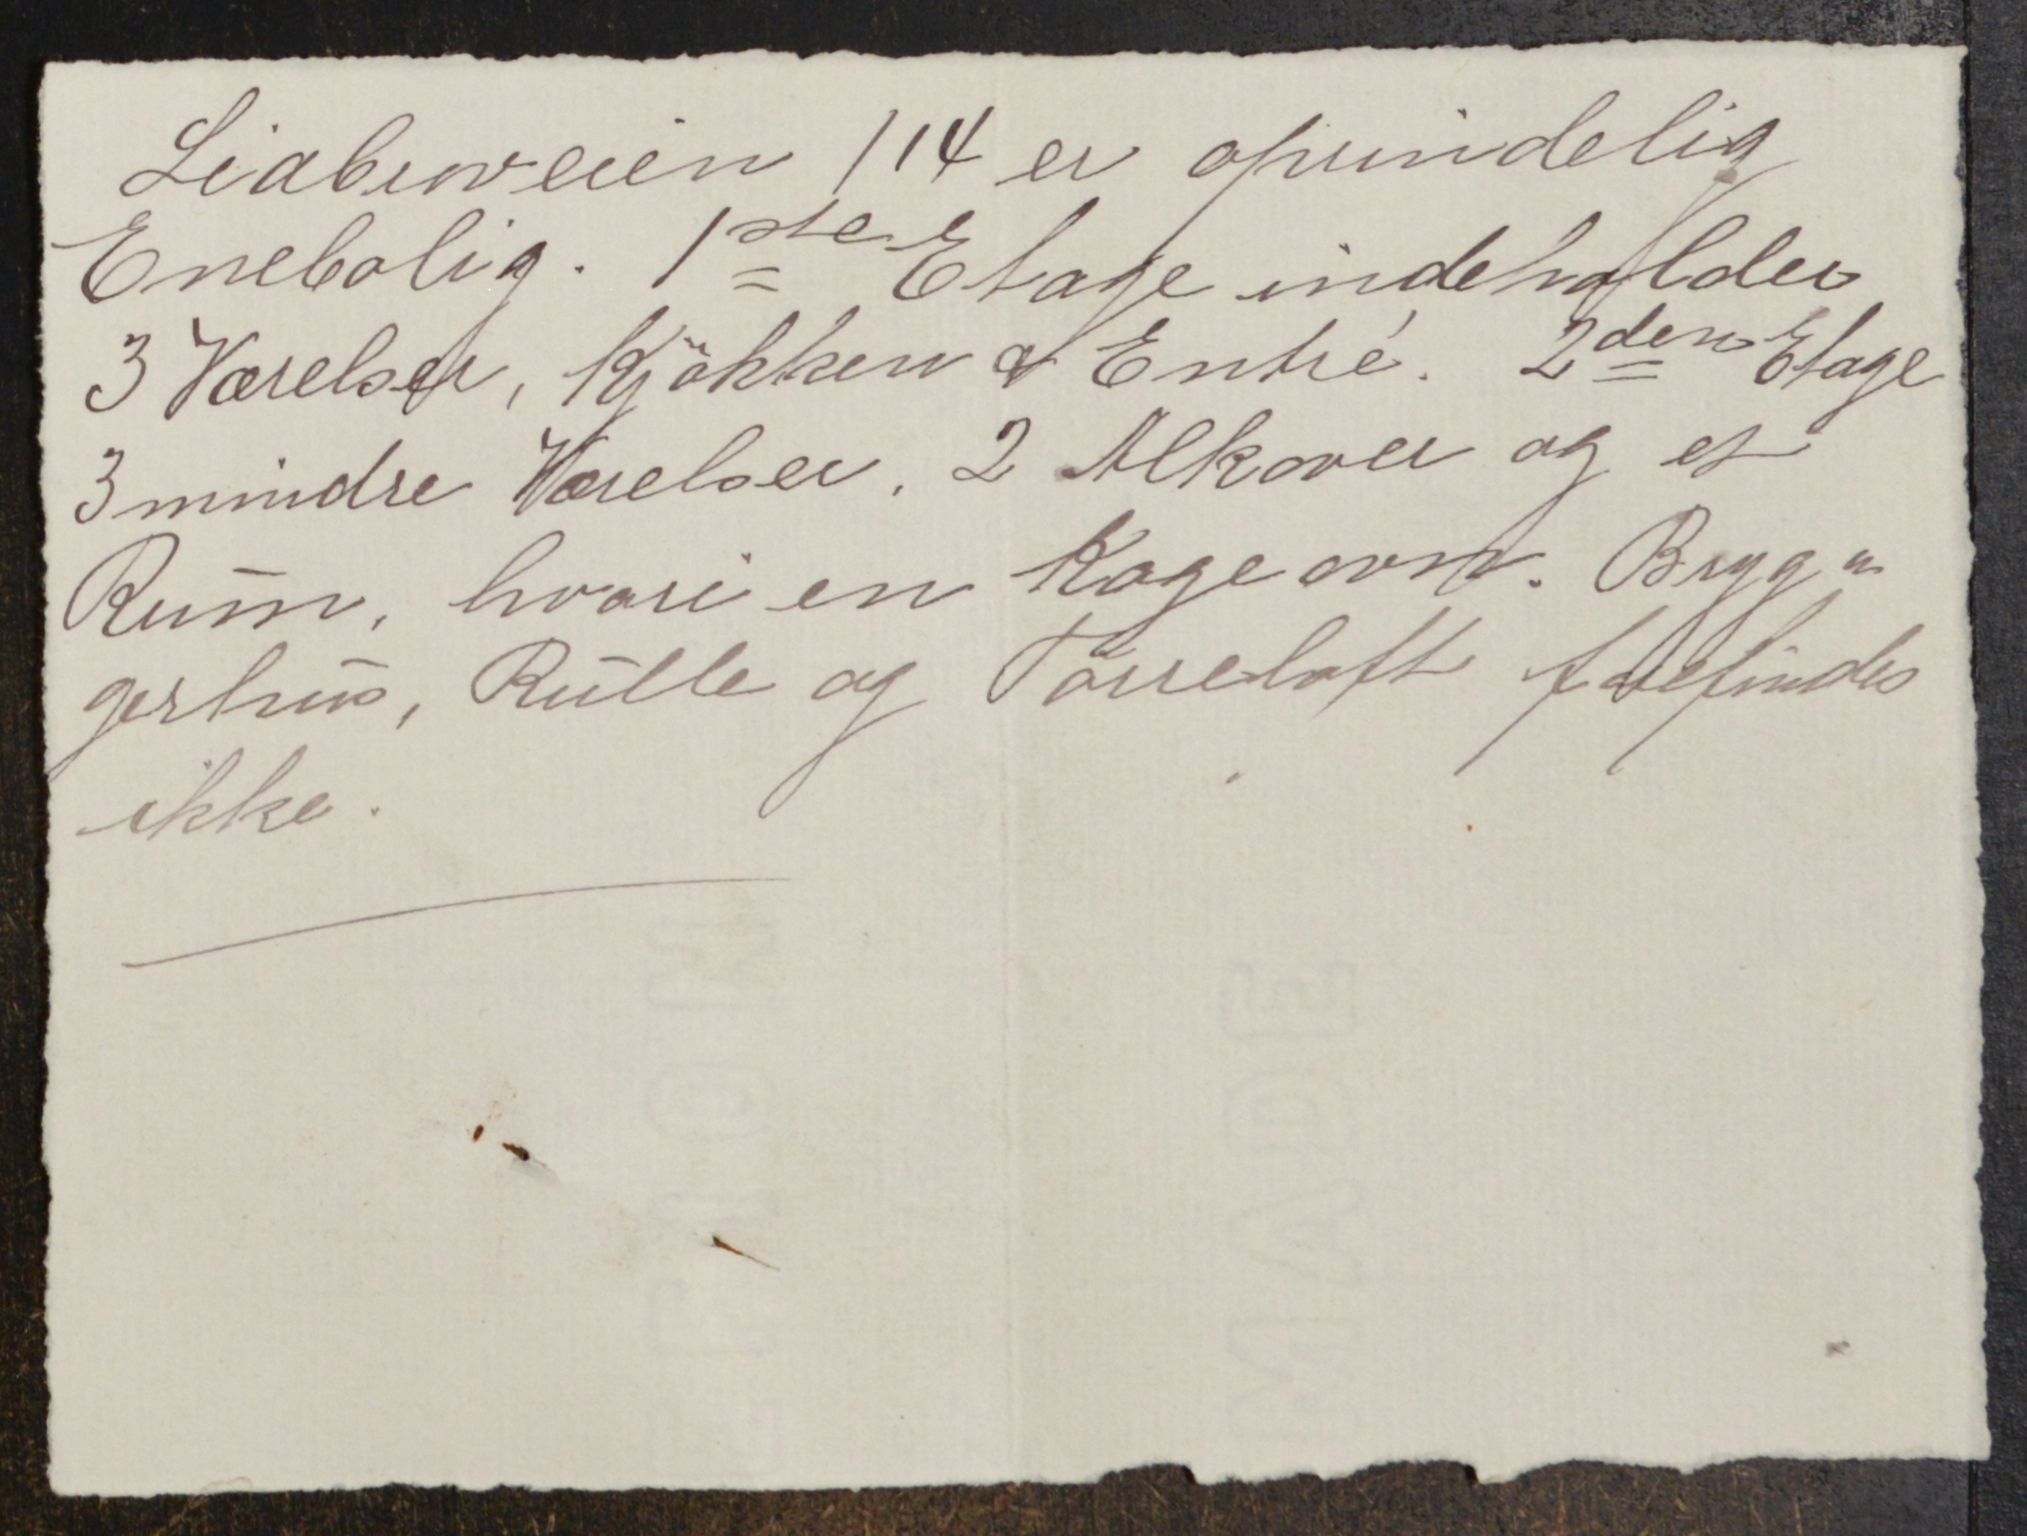 Liabroveien 114 er oprindelig
Enebolig. 1ste Etage indeholder
3 Værelser, Kjökken & Entré. 2den Etage
3 mindre Værelser, 2 Alkover og et
Rum, hvori en Kogeovn. Bryg„
gerhus, Rulle og Törreloft forefindes
ikke.